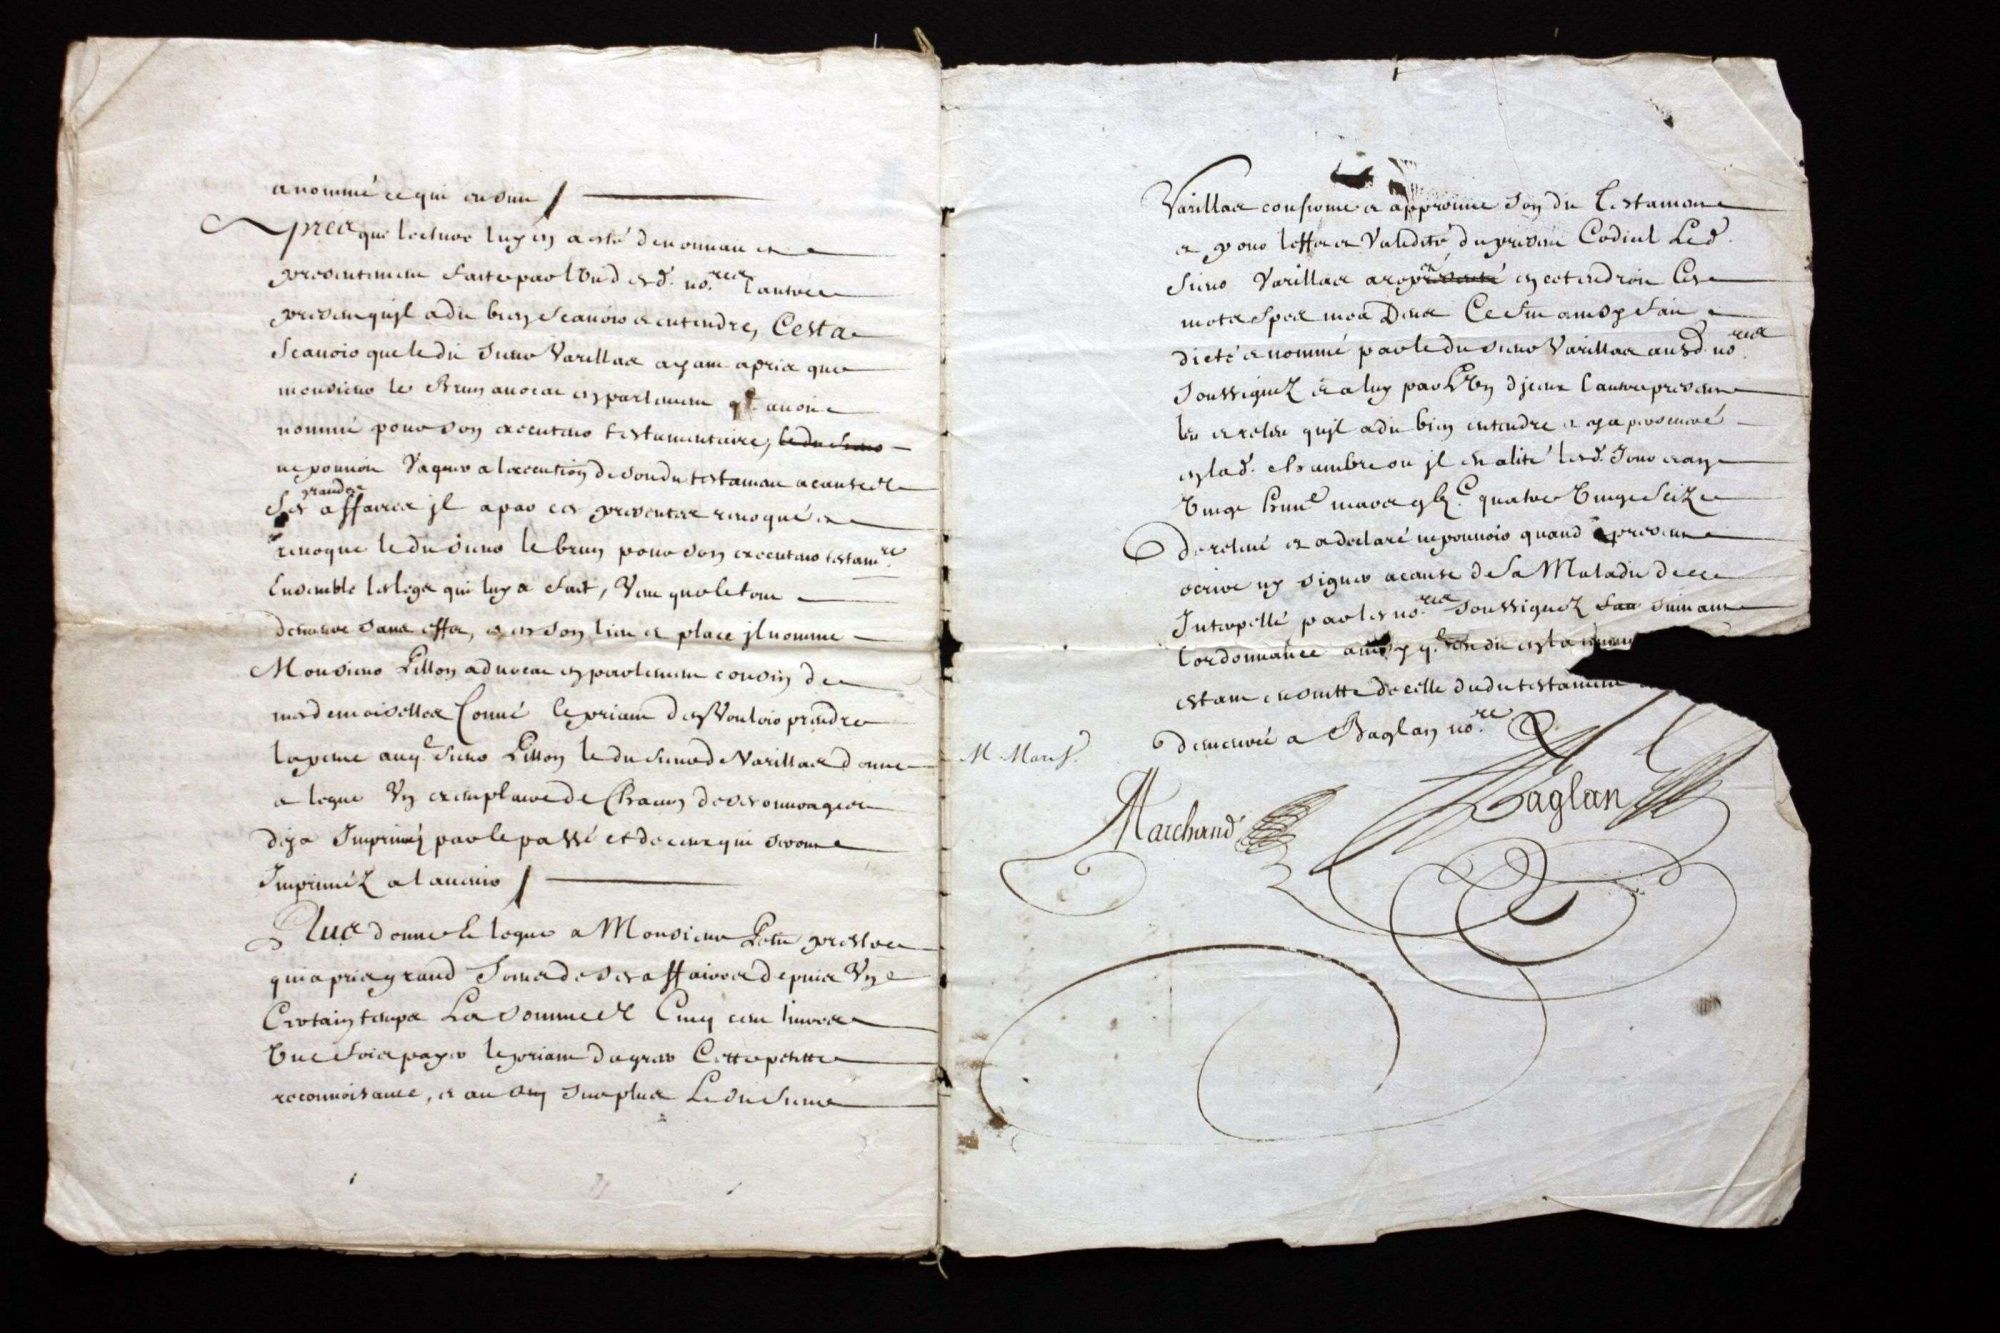 a nommé ce qui ensuit /
Apres que lecture luy en a esté denouveau et
presentement faite par l'un desd. no.res l'autre
present quil a dit bien scauoir et entendre, Cest a
Scauoir que le dit sieur Varillas ayant apris que
monsieur le Brun auocat en parlement auoit
nommé pour son executeur testamentaire, ledit sieur
ne pouuoit Vaquer a lexecution de sondit testament a cause de
ses grandes affaires jl a par ces presentes reuoqué et
reuoque ledit sieur le brun pour son executeur testam.re
Ensemble les legs qui luy a fait, Veut que le tout
demeure sans effet, et en son lieu et place jl nomme
Monsieur Pillon aduocat en parlement cousin de
mesdemoiselles Conné le priant den Vouloir prendre
la peine auq.l sieur Pillon ledit sieur de Varillas donne
et legue Vn exemplaire de Chacun de ses ouurages
deja Imprimez par le passé et de ceux qui seront
Imprimez a laduenir /
Plus donne et legue a Monsieur prestre
qui a pris grand soin de ses affaires depuis Vn
Certain temps La somme de Cinq cent liures
Vne fois payer le priant dagreer Cette petitte
reconnoissance, et au surplus Ledit sieur
Varillas confirme et approuue son dit Testament
et pour leffet et Validité du present Codicil Led.
sieur Varillas a repeté en cet endroit Ces
mots Spes mea Deus Ce fut ainsy fait
dicté et nommé par ledit sieur Varillas ausd. no.res
soussignez et a luy par l'Vn djceux l'autre present
leu et releu quil a dit bien entendre et y a perseueré
en lad. chambre ou jl est alité lesd. jour et an
Vingt huit mars quatre Vingt seize
de releué et a declaré ne pouuoir quand a present
ecrire ny signer a cause de sa Maladie de ce
Interpellé par les no.res soussignez suiuant
l'ordonnance ainsy q.l est dit en la minute
estant ensuitte de celle dudit testament
demeuré a Baglan no.re
M Marc
Marchand
Baglan